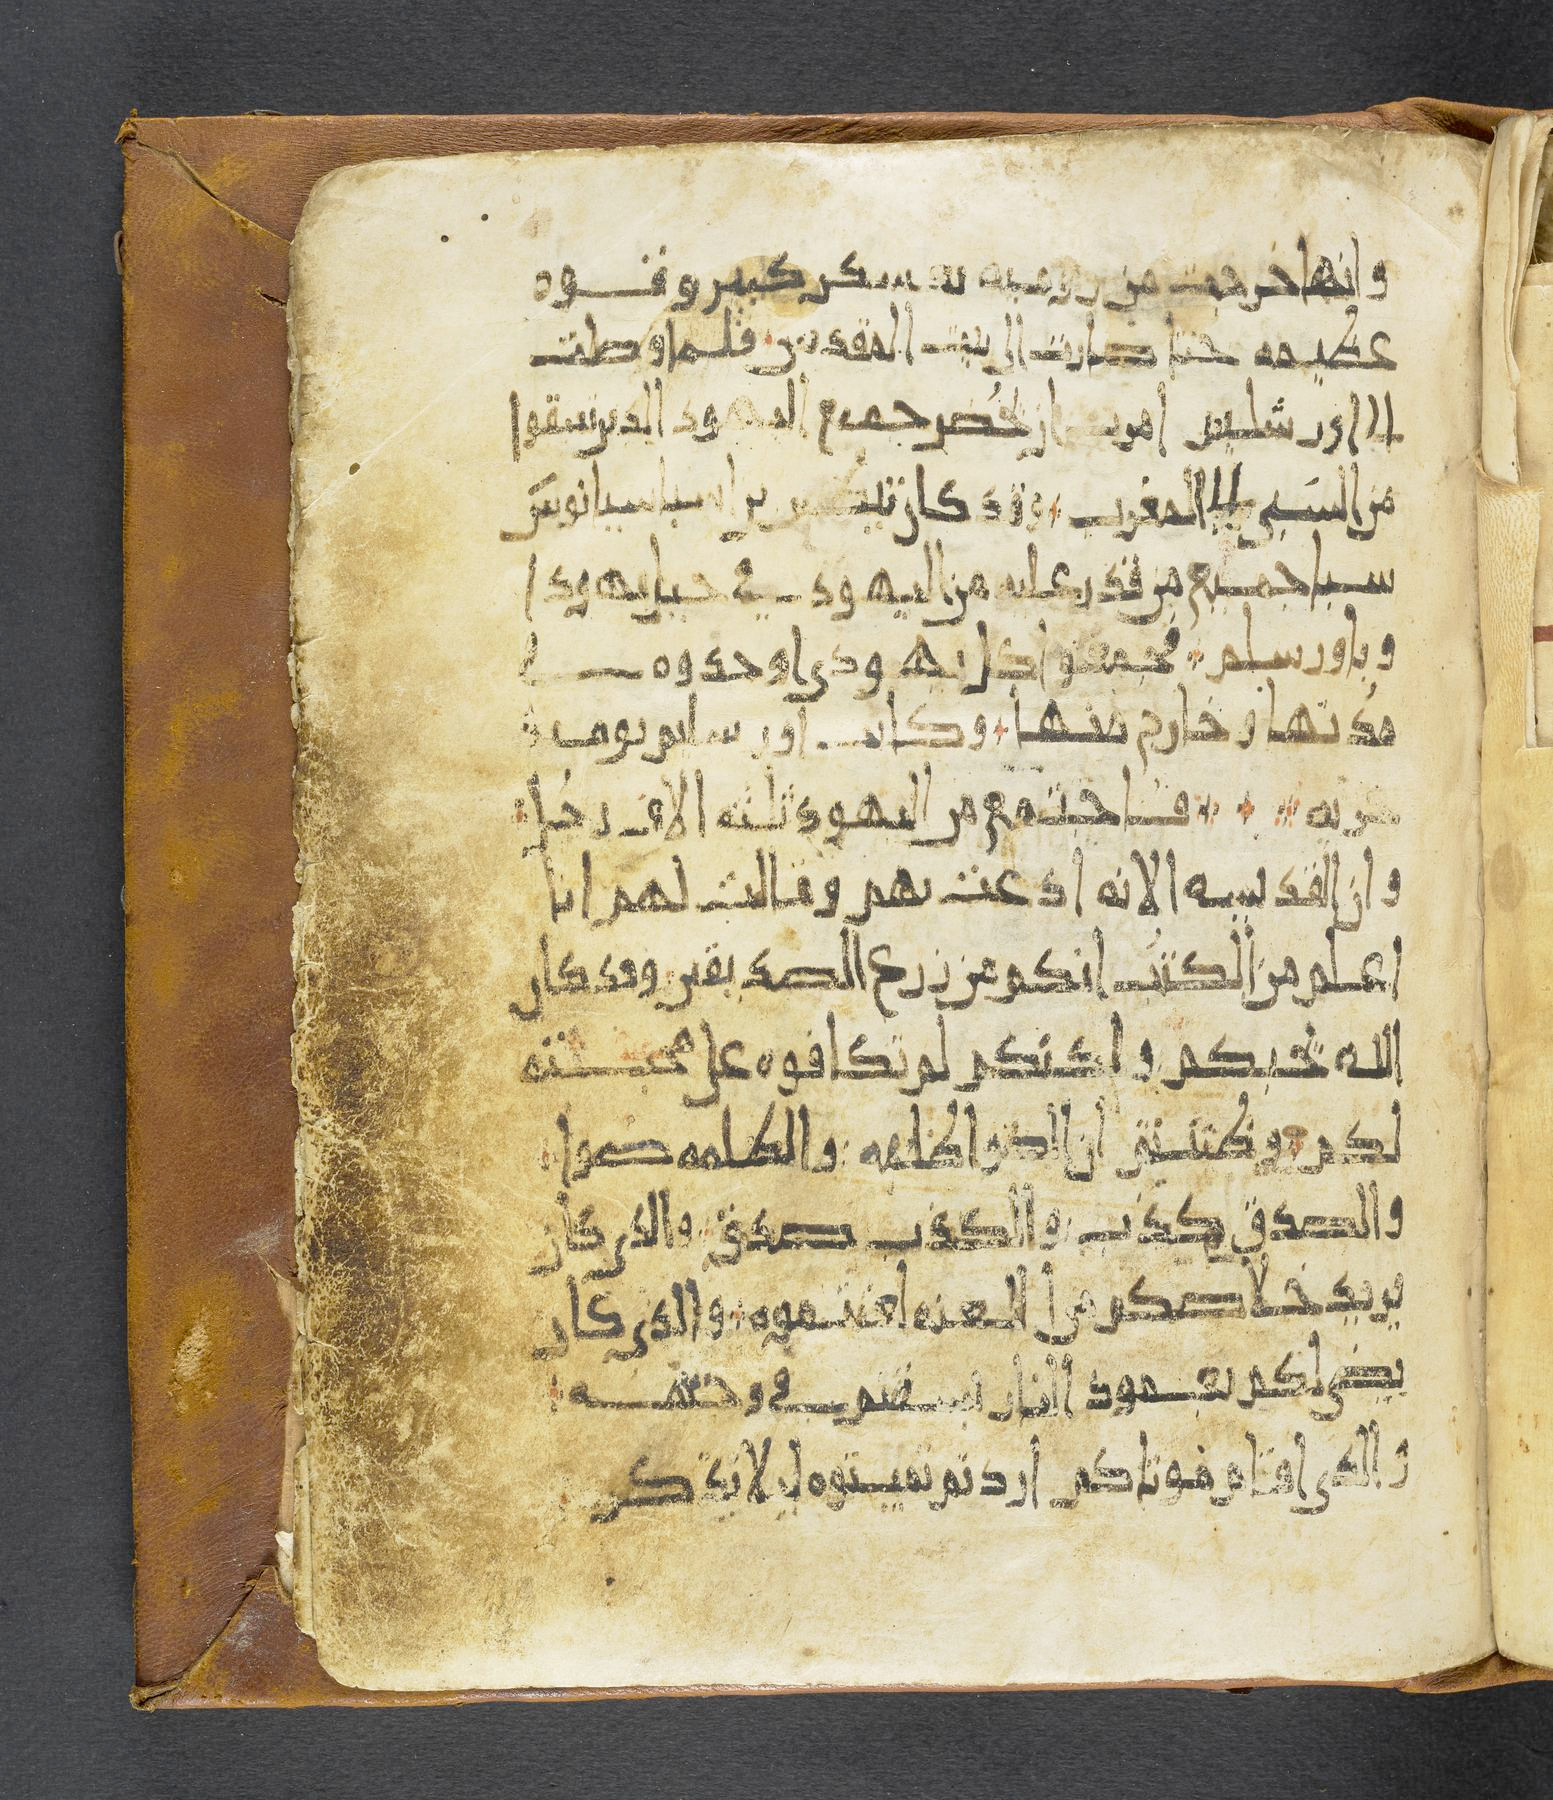 وانها خرجت من روميه بعسكر كبير وقوه
عظيمه حتا صارت الى بيت المقدس فلما وصلت
الى اورشليم امرت ان يحضر جميع اليهود الدين بقوا
من السبى الى المغرب وقد كان تيطس بن اسباسيانوس
سبا جميع من قدر عليه من اليهود في جبل يهودا
وباورسلم فجمعوا كل يهودى اوجدوه في
مدنها وخارج منها وكانت اورسليم يوميد
خربه فاجتمع من اليهود ثلثه الاف رجل
وان القديسه الانه ادعت بهم وقالت لهم انا
اعلم من الكتب انكم من زرع الصديقين وقد كان
الله يحبكم ولكنكم لم تكافوه على محبته
لكم وظننتم ان النور الظلمه والظلمه ضوا
والصدق كذب والكذب صدق والدى كان
يريد خلاصكم من اللعنه لعنتموه والدى كان
يضى لكم بعمود النار بسقتم في وجهه
والدى اقام موتاكم اردتم تميتوه ليلا يدكر